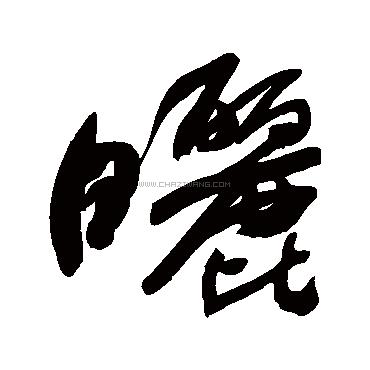 曬
WWW.CHAZIWANG.COM